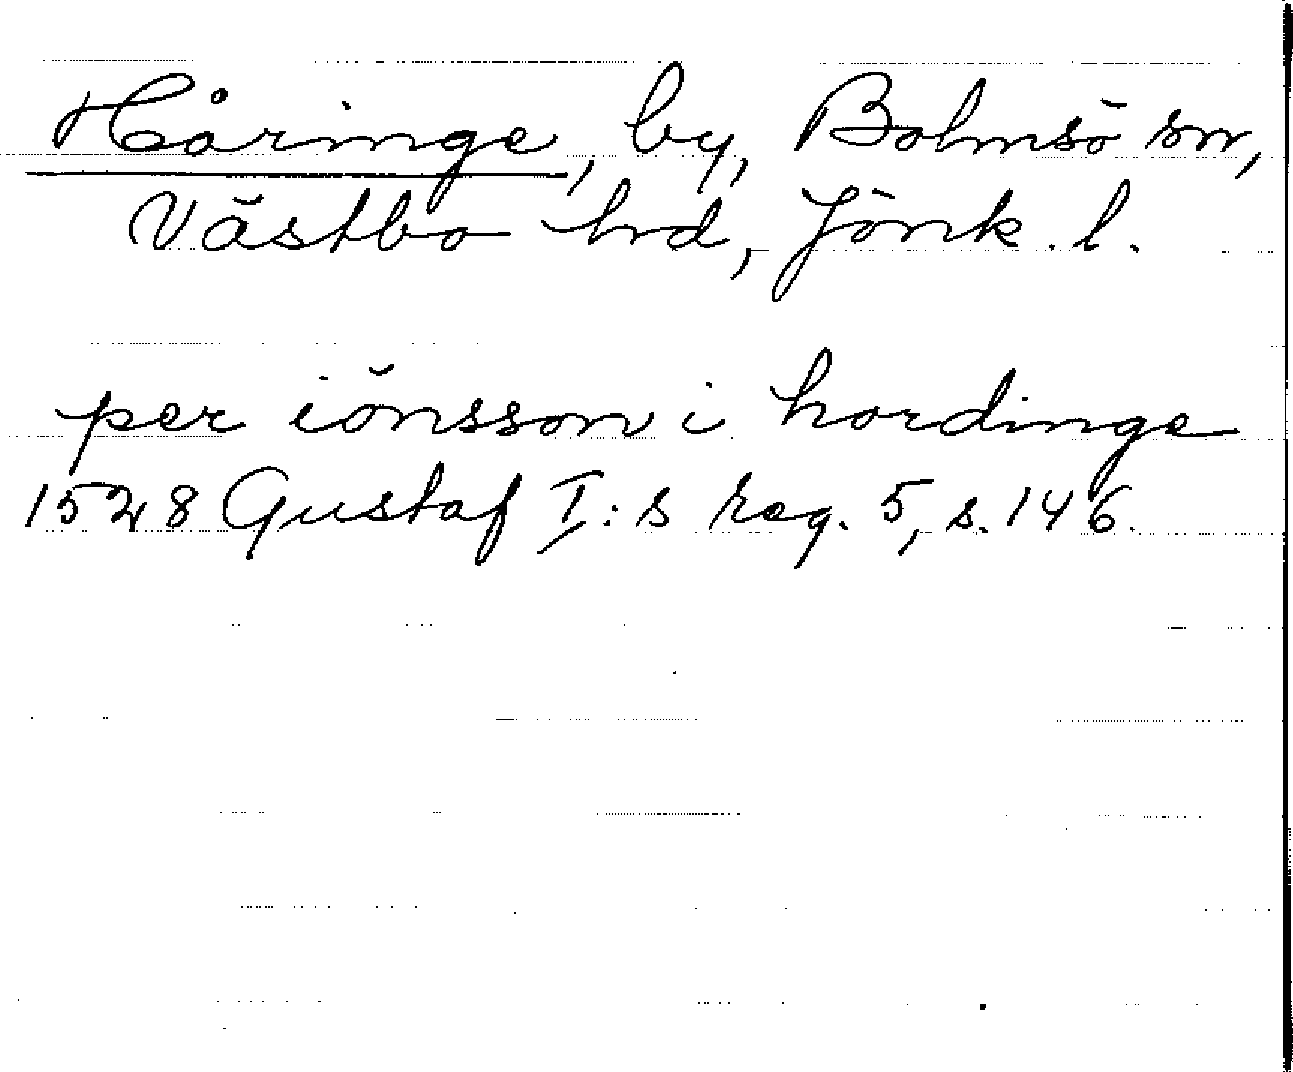 Håringe, by, Bolmsö sn,
Västbo hd, Jönk. l.
per iönsson i hordinge
1528 Gustaf I:s reg. 5, s. 146.